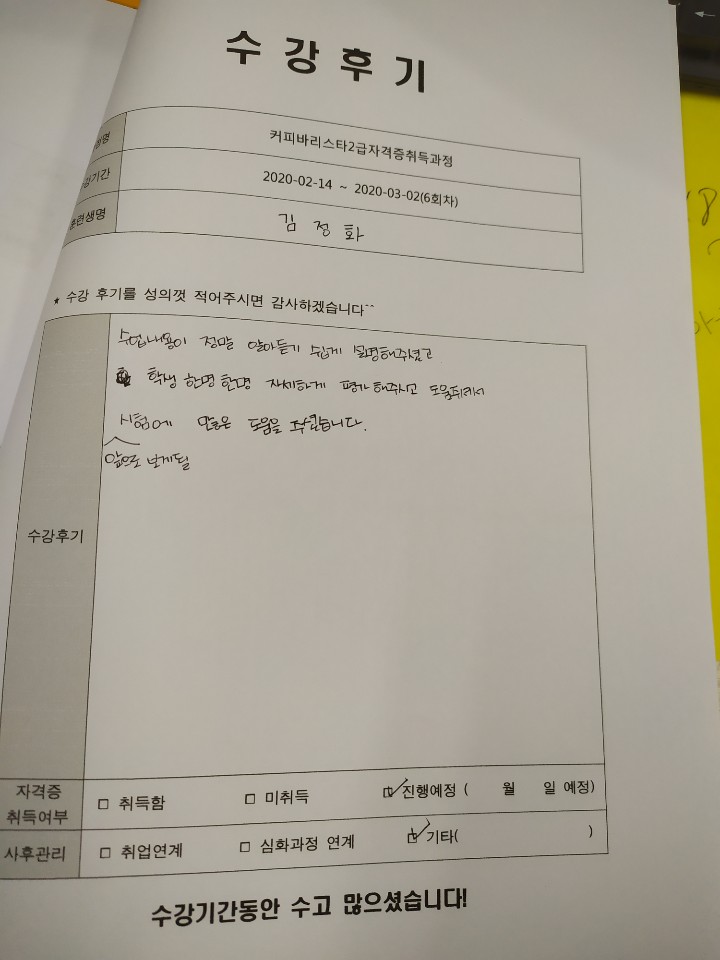 수강후기
커피바리스타2급자격증취득과정
강기간 2020-02-14 ~ 2020-03-02(6회차)
훈련생명 김정화
★ 수강 후기를 성의껏 적어주시면 감사하겠습니다^^
수강후기
수업내용이 정말 알아듣기 쉽게 설명해주셨고
학생 한명한명 자세하게 평가해주시고 도움줘서
시험에 많은 도움을 주셨습니다.
앞으로 보게될
자격증 취득여부 □ 취득함 □ 미취득 ☑ 진행예정 ( 월 일 예정)
사후관리 □ 취업연계 □ 심화과정 연계 ☑ 기타( )
수강기간동안 수고 많으셨습니다!